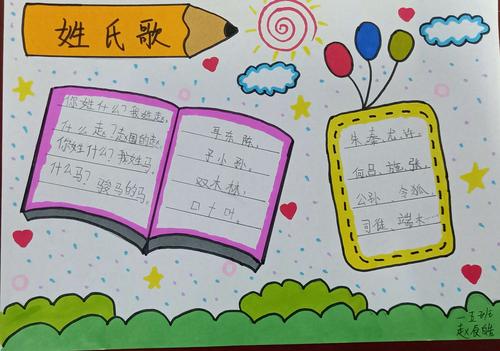 姓氏歌
你姓什么?我姓赵。
什么赵?赵国的赵。
你姓什么?我姓马。
什么马?骏马的马。
耳东陈,
子小孙,
双木林,
口十叶。
朱秦尤许,
何吕施张,
公孙 令狐,
司徒 端木
一五班